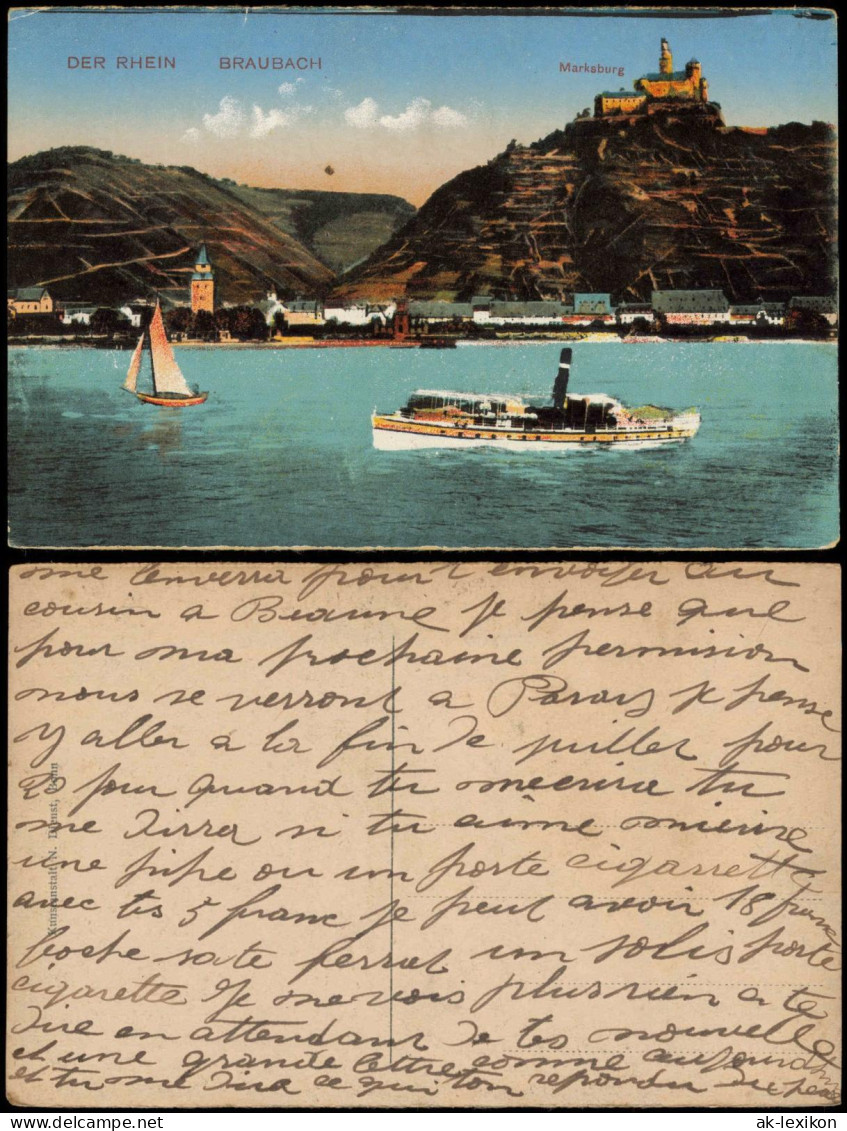 DER RHEIN BRAUBACH
Marksburg
me lenverra pour t envoyer au
cousin a Beaune je pense que
pour ma prochaine permision
nous se verront a Parays je pense
y aller a la fin de juillet pour
20 jour quand tu mecrira tu
me dirra si tu aime mieux
une pipe ou un porte cigarrette
avec tes 5 franc je peut avoir 18 franc
boche sa te ferrat un jolis porte
cigarette Je ne vois plus rien a te
dire en attendant de tes nouvelle
et une grande lettre comme aujourdh
et tu me dira ce qui ton repondu
Kunstanstalt N. Dienst, Bonn
ak-lexikon